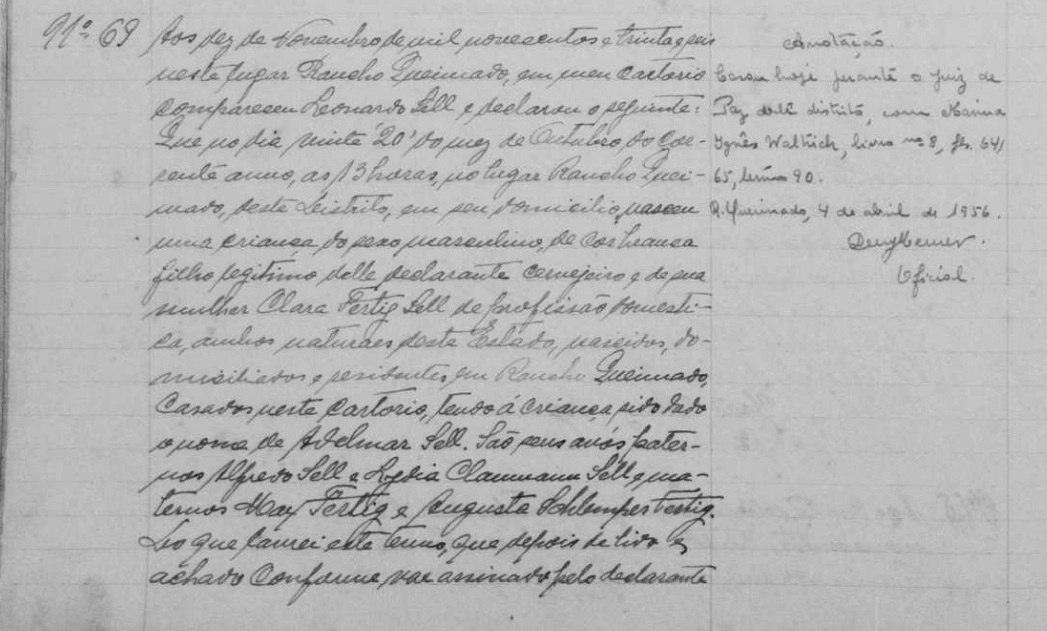 Nº 69
Aos dez de Novembro de mil novecentos e trinta e seis
neste lugar Rancho Queimado, em meu Cartorio
compareceu Leonardo Sell e declarou o seguinte:
Que no dia vinte '20' do mez de Outubro do Cor-
rente anno, as 13 horas, no lugar Rancho Quei-
mado, deste Districto, em seu domicilio, nasceu
uma criança do sexo masculino, de cor branca
filho legitimo delle declarante e de sua
mulher Clara Fertig Sell de profissão domesti-
ca, ambos naturaes deste Estado, nascidos, do-
miciliados e residentes em Rancho Queimado,
Casados neste Cartorio, tendo á criança sido dado
o nome de Adelmar Sell. São seus avós pater-
nos Alfredo Sell e Lydia Clasmann Sell e ma-
ternos Max Fertig e Augusta Schlemper Fertig.
Do que lavrei este termo, que depois de lido e
achado Conforme vae assinado pelo declarante
Anotação.
Casou hoje perante o Juiz de
Paz deste distrito, com Marina
Ignês Waltrich, livro nº 8, fls. 64/
65, termo 90.
R. Queimado, 4 de abril de 1956.
Oficial.